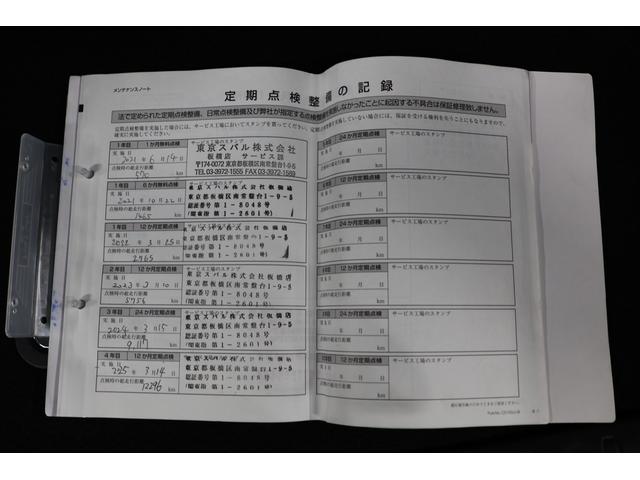 メンテナンスノート
定期点検整備の記録
法で定められた定期点検整備、日常点検整備及び弊社が指定する点検整備を実施しなかったことに起因する不具合は保証修理致しません。
定期点検整備を実施した場合には、サービス工場においてスタンプを貰ってください。
1年目 1か月無料点検
サービス工場のスタンプ
実施日
2021年6月14日
点検時の総走行距離
570 km
東京スバル株式会社
板橋店 サービス課
〒174-0072 東京都板橋区南常盤台1-9-5
TEL 03-3972-1555 FAX 03-3972-1569
1年目 6か月無料点検
実施日
2021年10月22日
点検時の総走行距離
1465 km
東京スバル株式会社板橋店
東京都板橋区南常盤台1-9-5
認証番号 第1-8048号
(関東指 第1-2601号)
1年目 12か月定期点検
実施日
2022年3月25日
点検時の総走行距離
2965 km
東京スバル株式会社板橋店
東京都板橋区南常盤台1-9-5
認証番号 第1-8048号
(関東指 第1-2601号)
2年目 12か月定期点検
サービス工場のスタンプ
実施日
2023年3月10日
点検時の総走行距離
5756 km
東京スバル株式会社板橋店
東京都板橋区南常盤台1-9-5
認証番号 第1-8048号
(関東指 第1-2601号)
3年目 24か月定期点検
サービス工場のスタンプ
実施日
2024年3月15日
点検時の総走行距離
9,117 km
東京スバル株式会社板橋店
東京都板橋区南常盤台1-9-5
認証番号 第1-8048号
(関東指 第1-2601号)
4年目 12か月定期点検
サービス工場のスタンプ
実施日
2025年3月14日
点検時の総走行距離
12296 km
東京スバル株式会社板橋店
東京都板橋区南常盤台1-9-5
認証番号 第1-8048号
(関東指 第1-2601号)
24か月定期点検
サービス工場のスタンプ
年 月 日
km
12か月定期点検
サービス工場のスタンプ
年 月 日
km
24か月定期点検
サービス工場のスタンプ
年 月 日
km
12か月定期点検
サービス工場のスタンプ
年 月 日
km
24か月定期点検
サービス工場のスタンプ
年 月 日
km
12か月定期点検
サービス工場のスタンプ
年 月 日
km